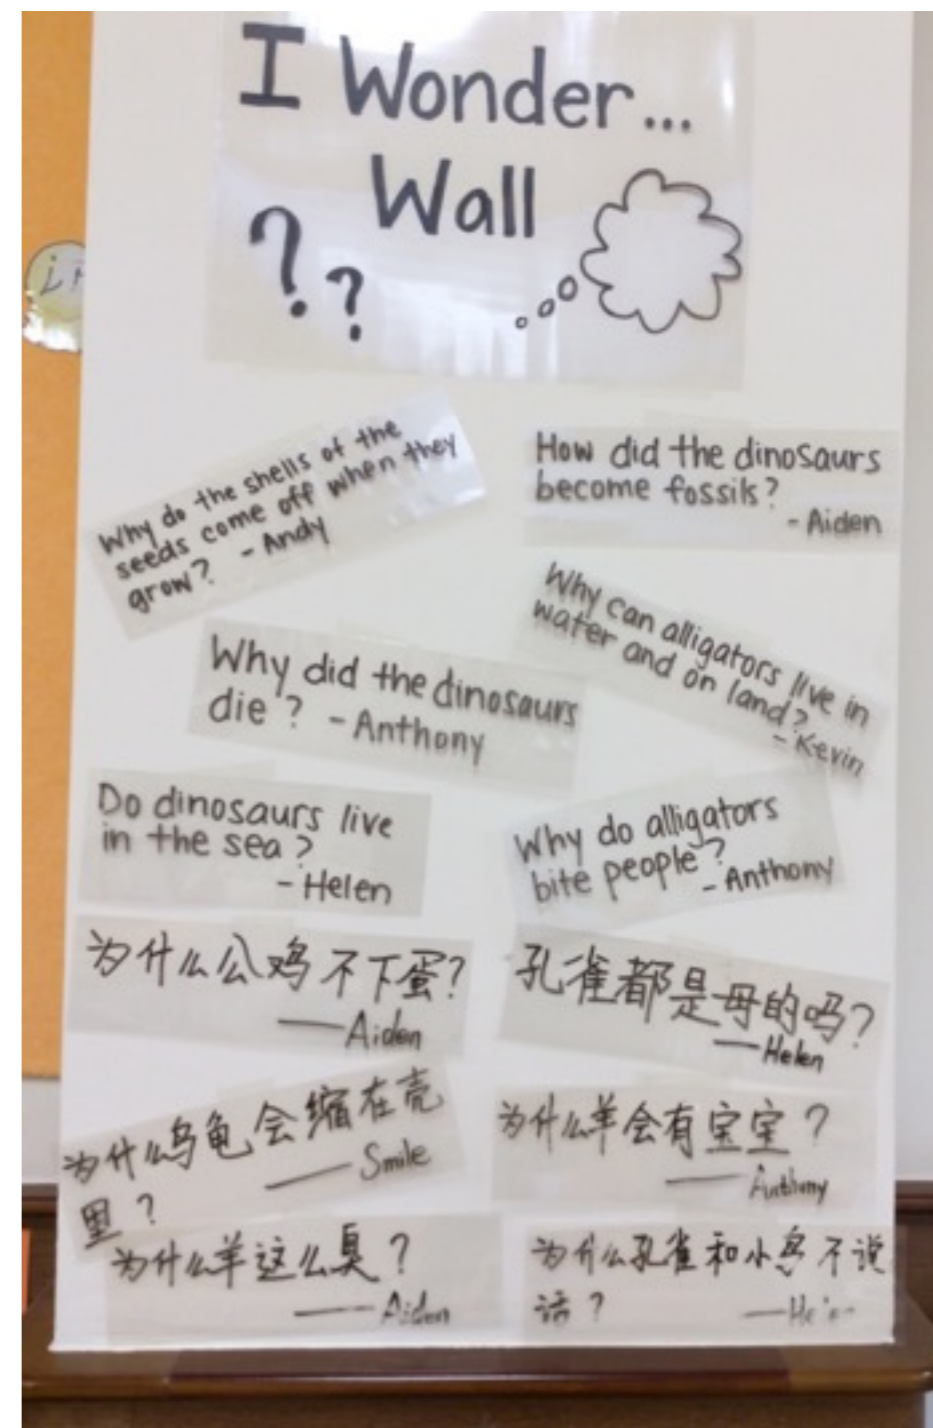 I Wonder...
Wall
? ?
Why do the shells of the
seeds come off when they
grow? - Andy
How did the dinosaurs
become fossils?
- Aiden
Why can alligators live in
water and on land?
- Kevin
Why did the dinosaurs
die? - Anthony
Do dinosaurs live
in the sea?
- Helen
Why do alligators
bite people?
- Anthony
为什么公鸡不下蛋?
——Aiden
孔雀都是母的吗?
——Helen
为什么乌龟会缩在壳
里?
——Smile
为什么羊会有宝宝?
——Anthony
为什么羊这么臭?
——Aiden
为什么孔雀和小鸟不说
话?